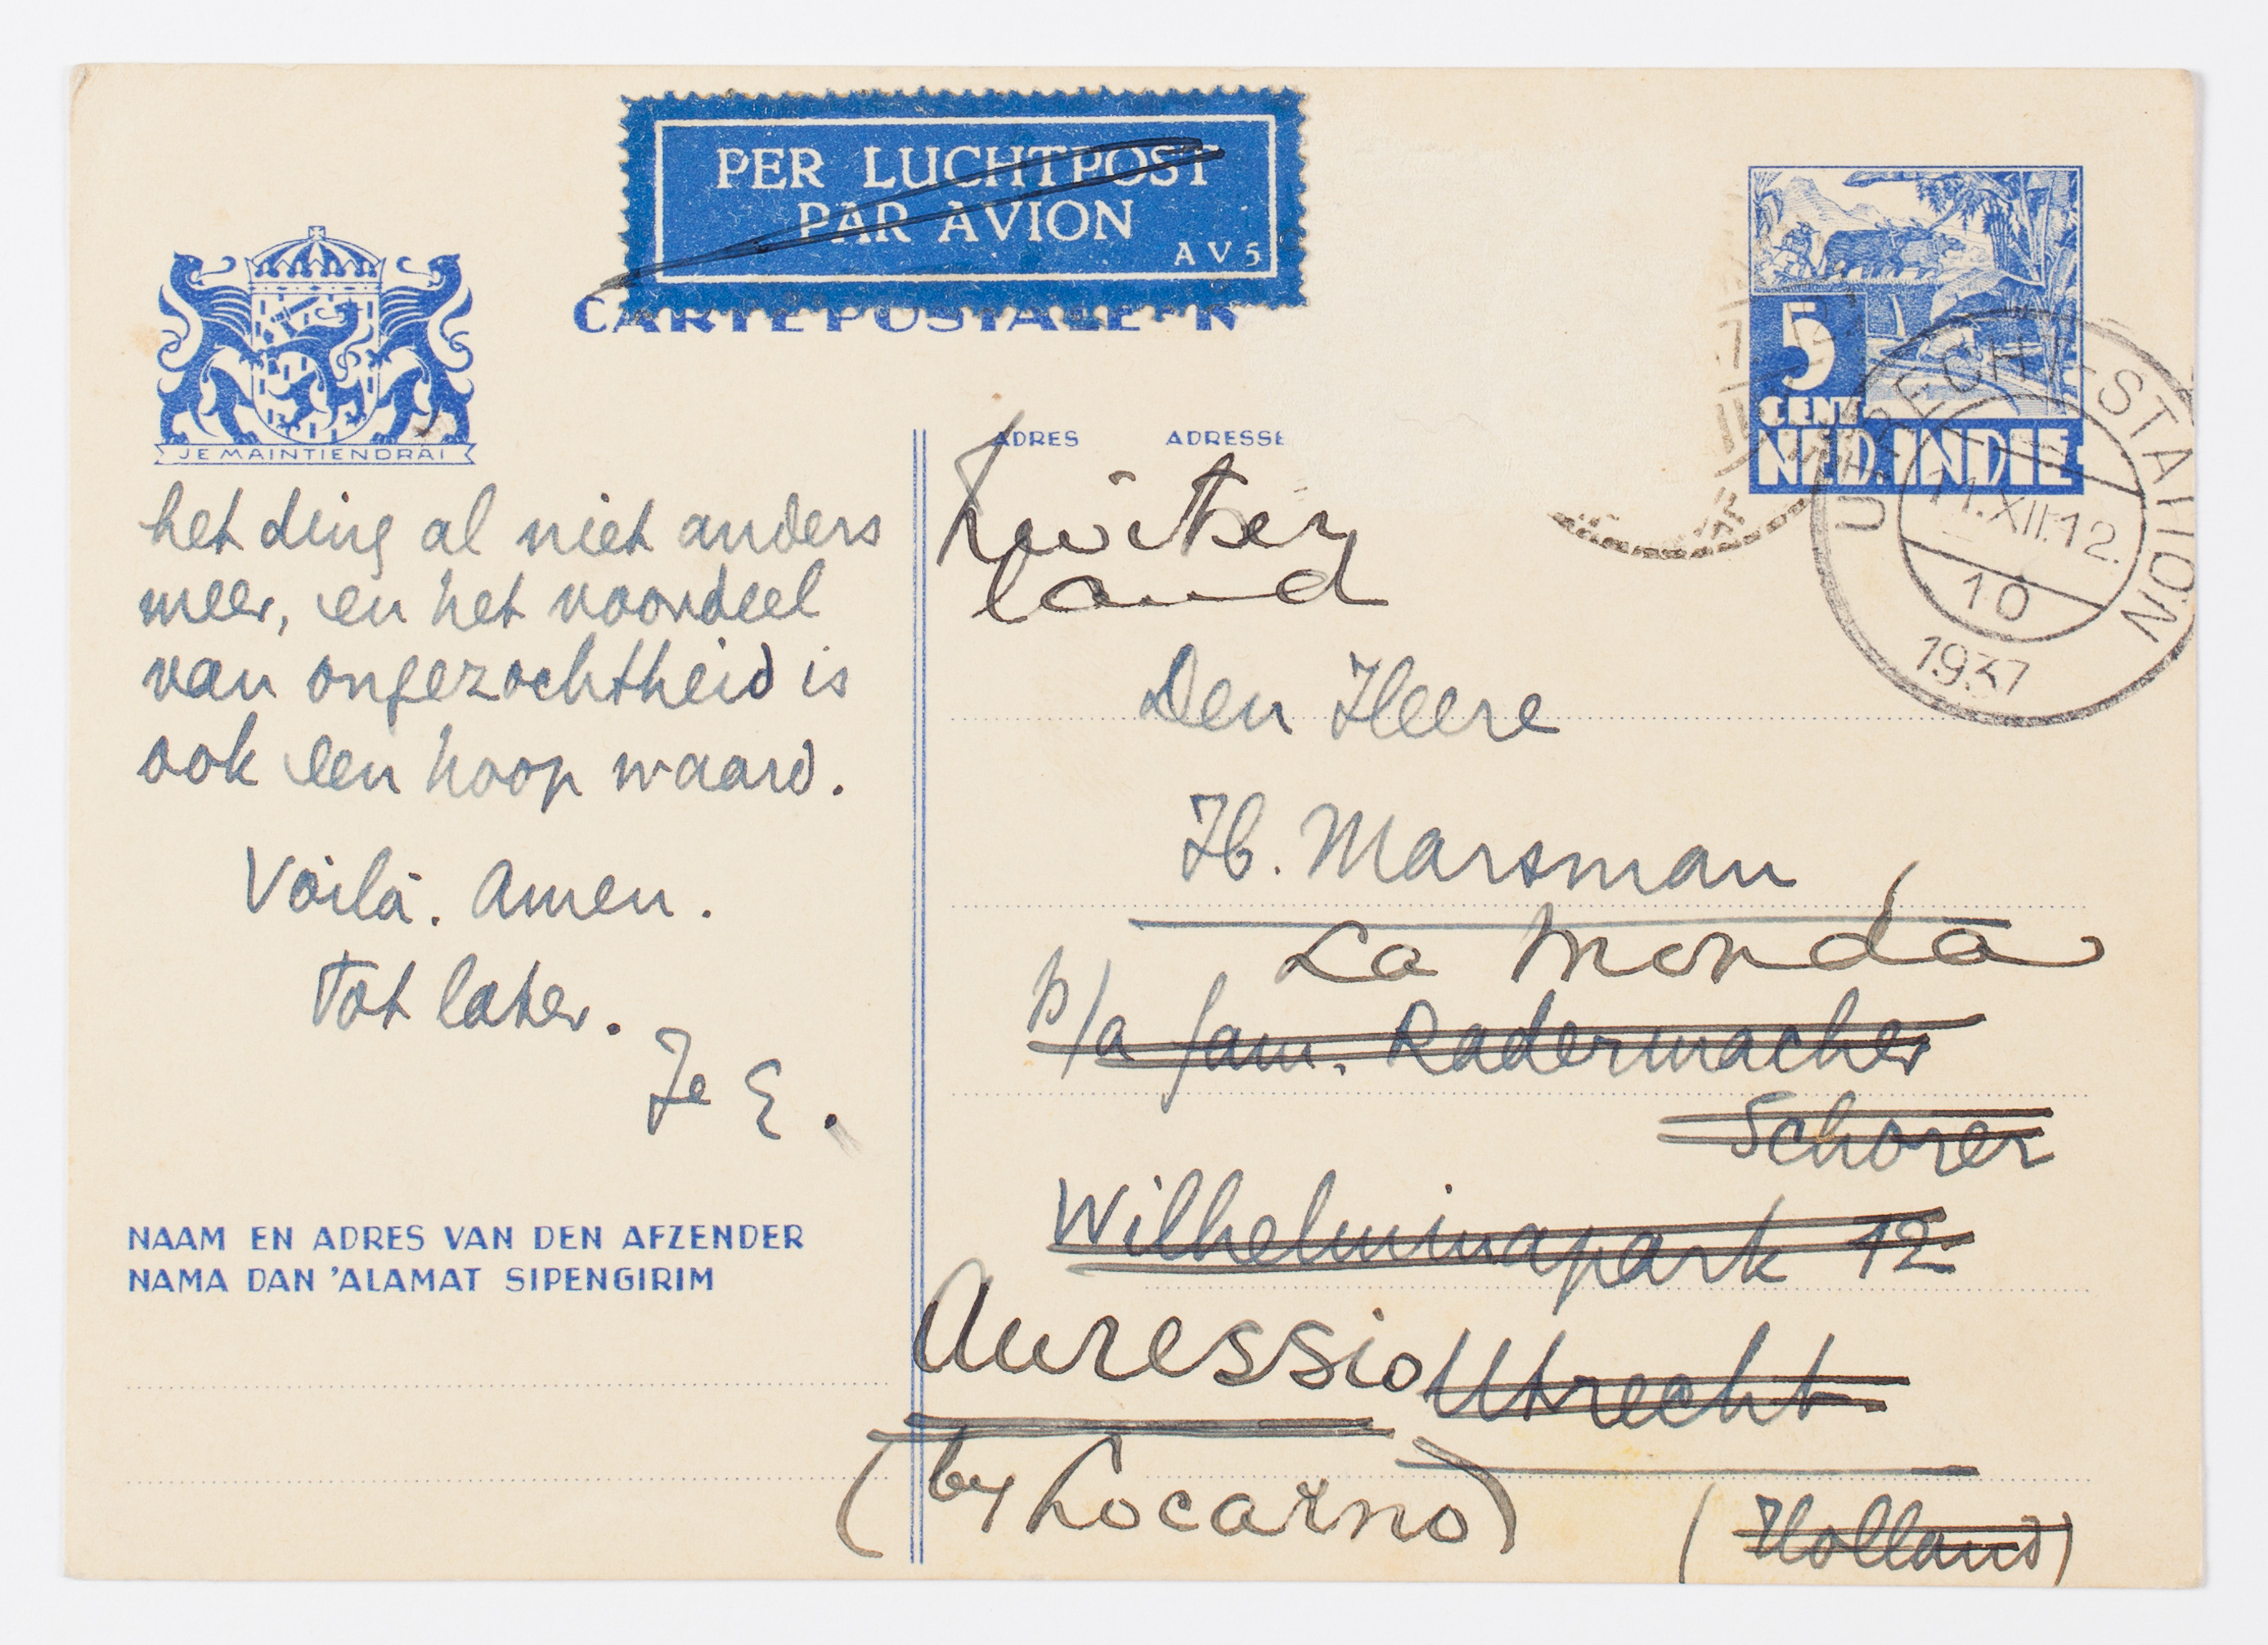 PER LUCHTPOST
PAR AVION
AV5
CARTE POSTALE
JE MAINTIENDRAI
5
CENT
NED. INDIE
UTRECHT-STATION
11.XII.12.
10
1937
het ding al niet anders
meer, en het voordeel
van ongezochtheid is
ook een hoop waard.
Voilà. Amen.
Tot later.
Je E.
NAAM EN ADRES VAN DEN AFZENDER
NAMA DAN 'ALAMAT SIPENGIRIM
ADRES ADRESSE
Zwitser
land
Den Heere
H. Marsman
La Monda
p/a fam. Radermacher
Schorer
Wilhelminapark 12
Auressio Utrecht
(by Locarno)
(Holland)